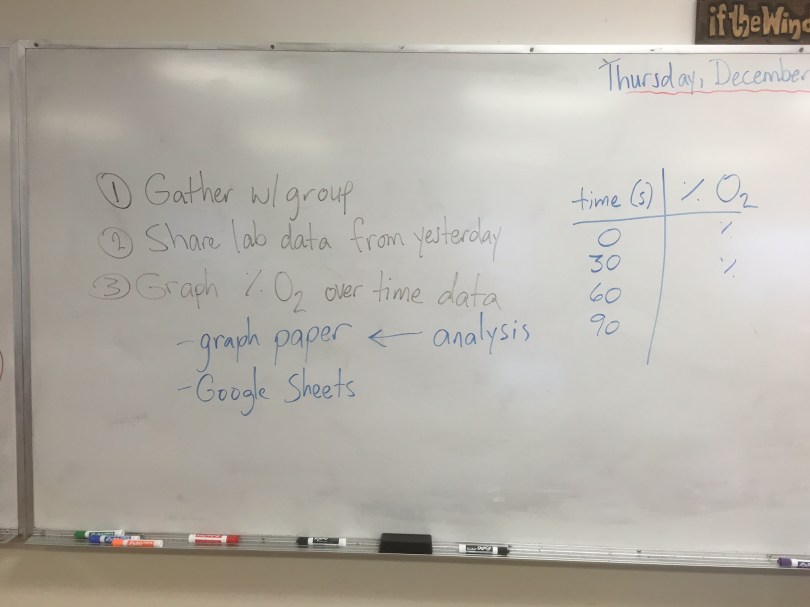 if the Wind
Thursday, December
① Gather w/ group
② Share lab data from yesterday
③ Graph % O₂ over time data
- graph paper ← analysis
- Google Sheets
time (s) | % O₂
0 %
30 %
60
90